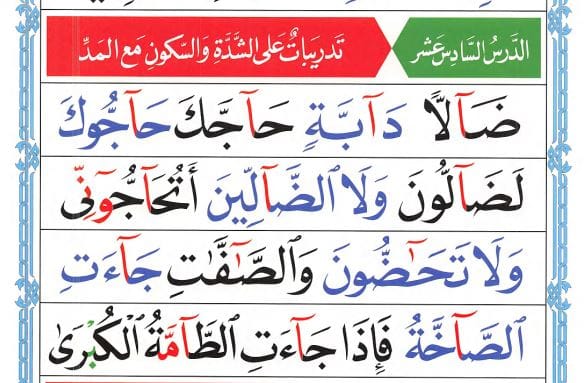 الدَّرْسُ السَّادِسَ عَشَر تَدرِيبَاتٌ عَلَى الشَّدَّةِ وَالسُّكُونِ مَعَ الْمَدِّ
ضَآلًّا دَآبَّةٍ حَآجَّكَ حَآجُّوكَ
لَضَآلُّونَ وَلَا ٱلضَّآلِّينَ أَتُحَـٰٓجُّوٓنِّى
وَلَا تَحَـٰٓضُّونَ وَٱلصَّـٰٓفَّـٰتِ جَآءَتِ
ٱلصَّآخَّةُ فَإِذَا جَآءَتِ ٱلطَّآمَّةُ ٱلْكُبْرَىٰ